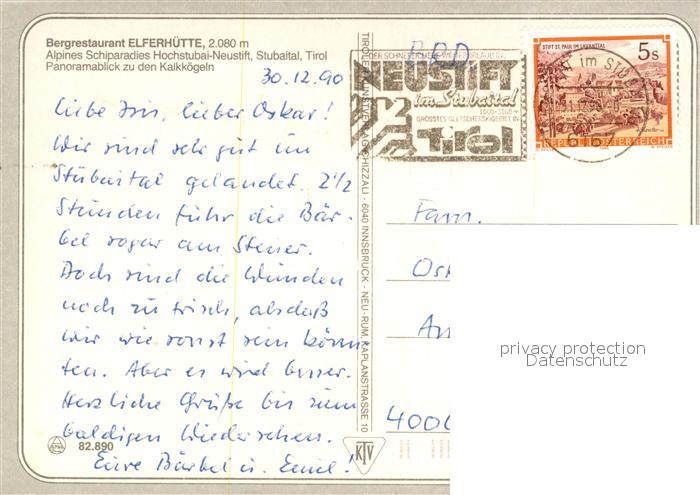 Bergrestaurant ELFERHÜTTE, 2.080 m
Alpines Schiparadies Hochstubai-Neustift, Stubaital, Tirol
Panoramablick zu den Kalkkögeln
30.12.90
Liebe Iris, lieber Oskar!
Wir sind sehr gut im
Stubaital gelandet. 2 1/2
Stunden fuhr die Bär-
bel sogar am Steuer.
Doch sind die Wunden
noch zu frisch, als daß
wir wie sonst sein könn-
ten. Aber es wird besser.
Herzliche Grüße bis zum
baldigen Wiedersehen.
Eure Bärbel u. Emil!
82.890
KTV
6040 INNSBRUCK - NEU-RUM, KAPLANSTRASSE 10
NEUSTIFT
im Stubaital
GRÖSSTES GLETSCHERSKIGEBIET IN
Tirol
STIFT ST. PAUL IM LAVANTTAL
5 s
REPUBLIK ÖSTERREICH
BRD
Fam.
Os
An
4000
privacy protection
Datenschutz